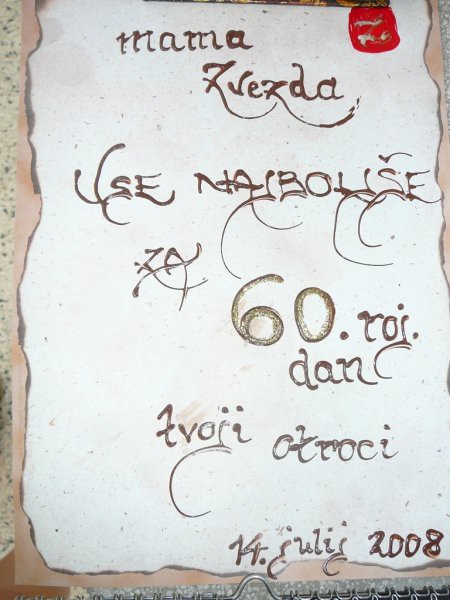 Z.
mama
Zvezda
VSE NAJBOLJŠE
ZA
60. roj.
dan
tvoji otroci
14. julij 2008